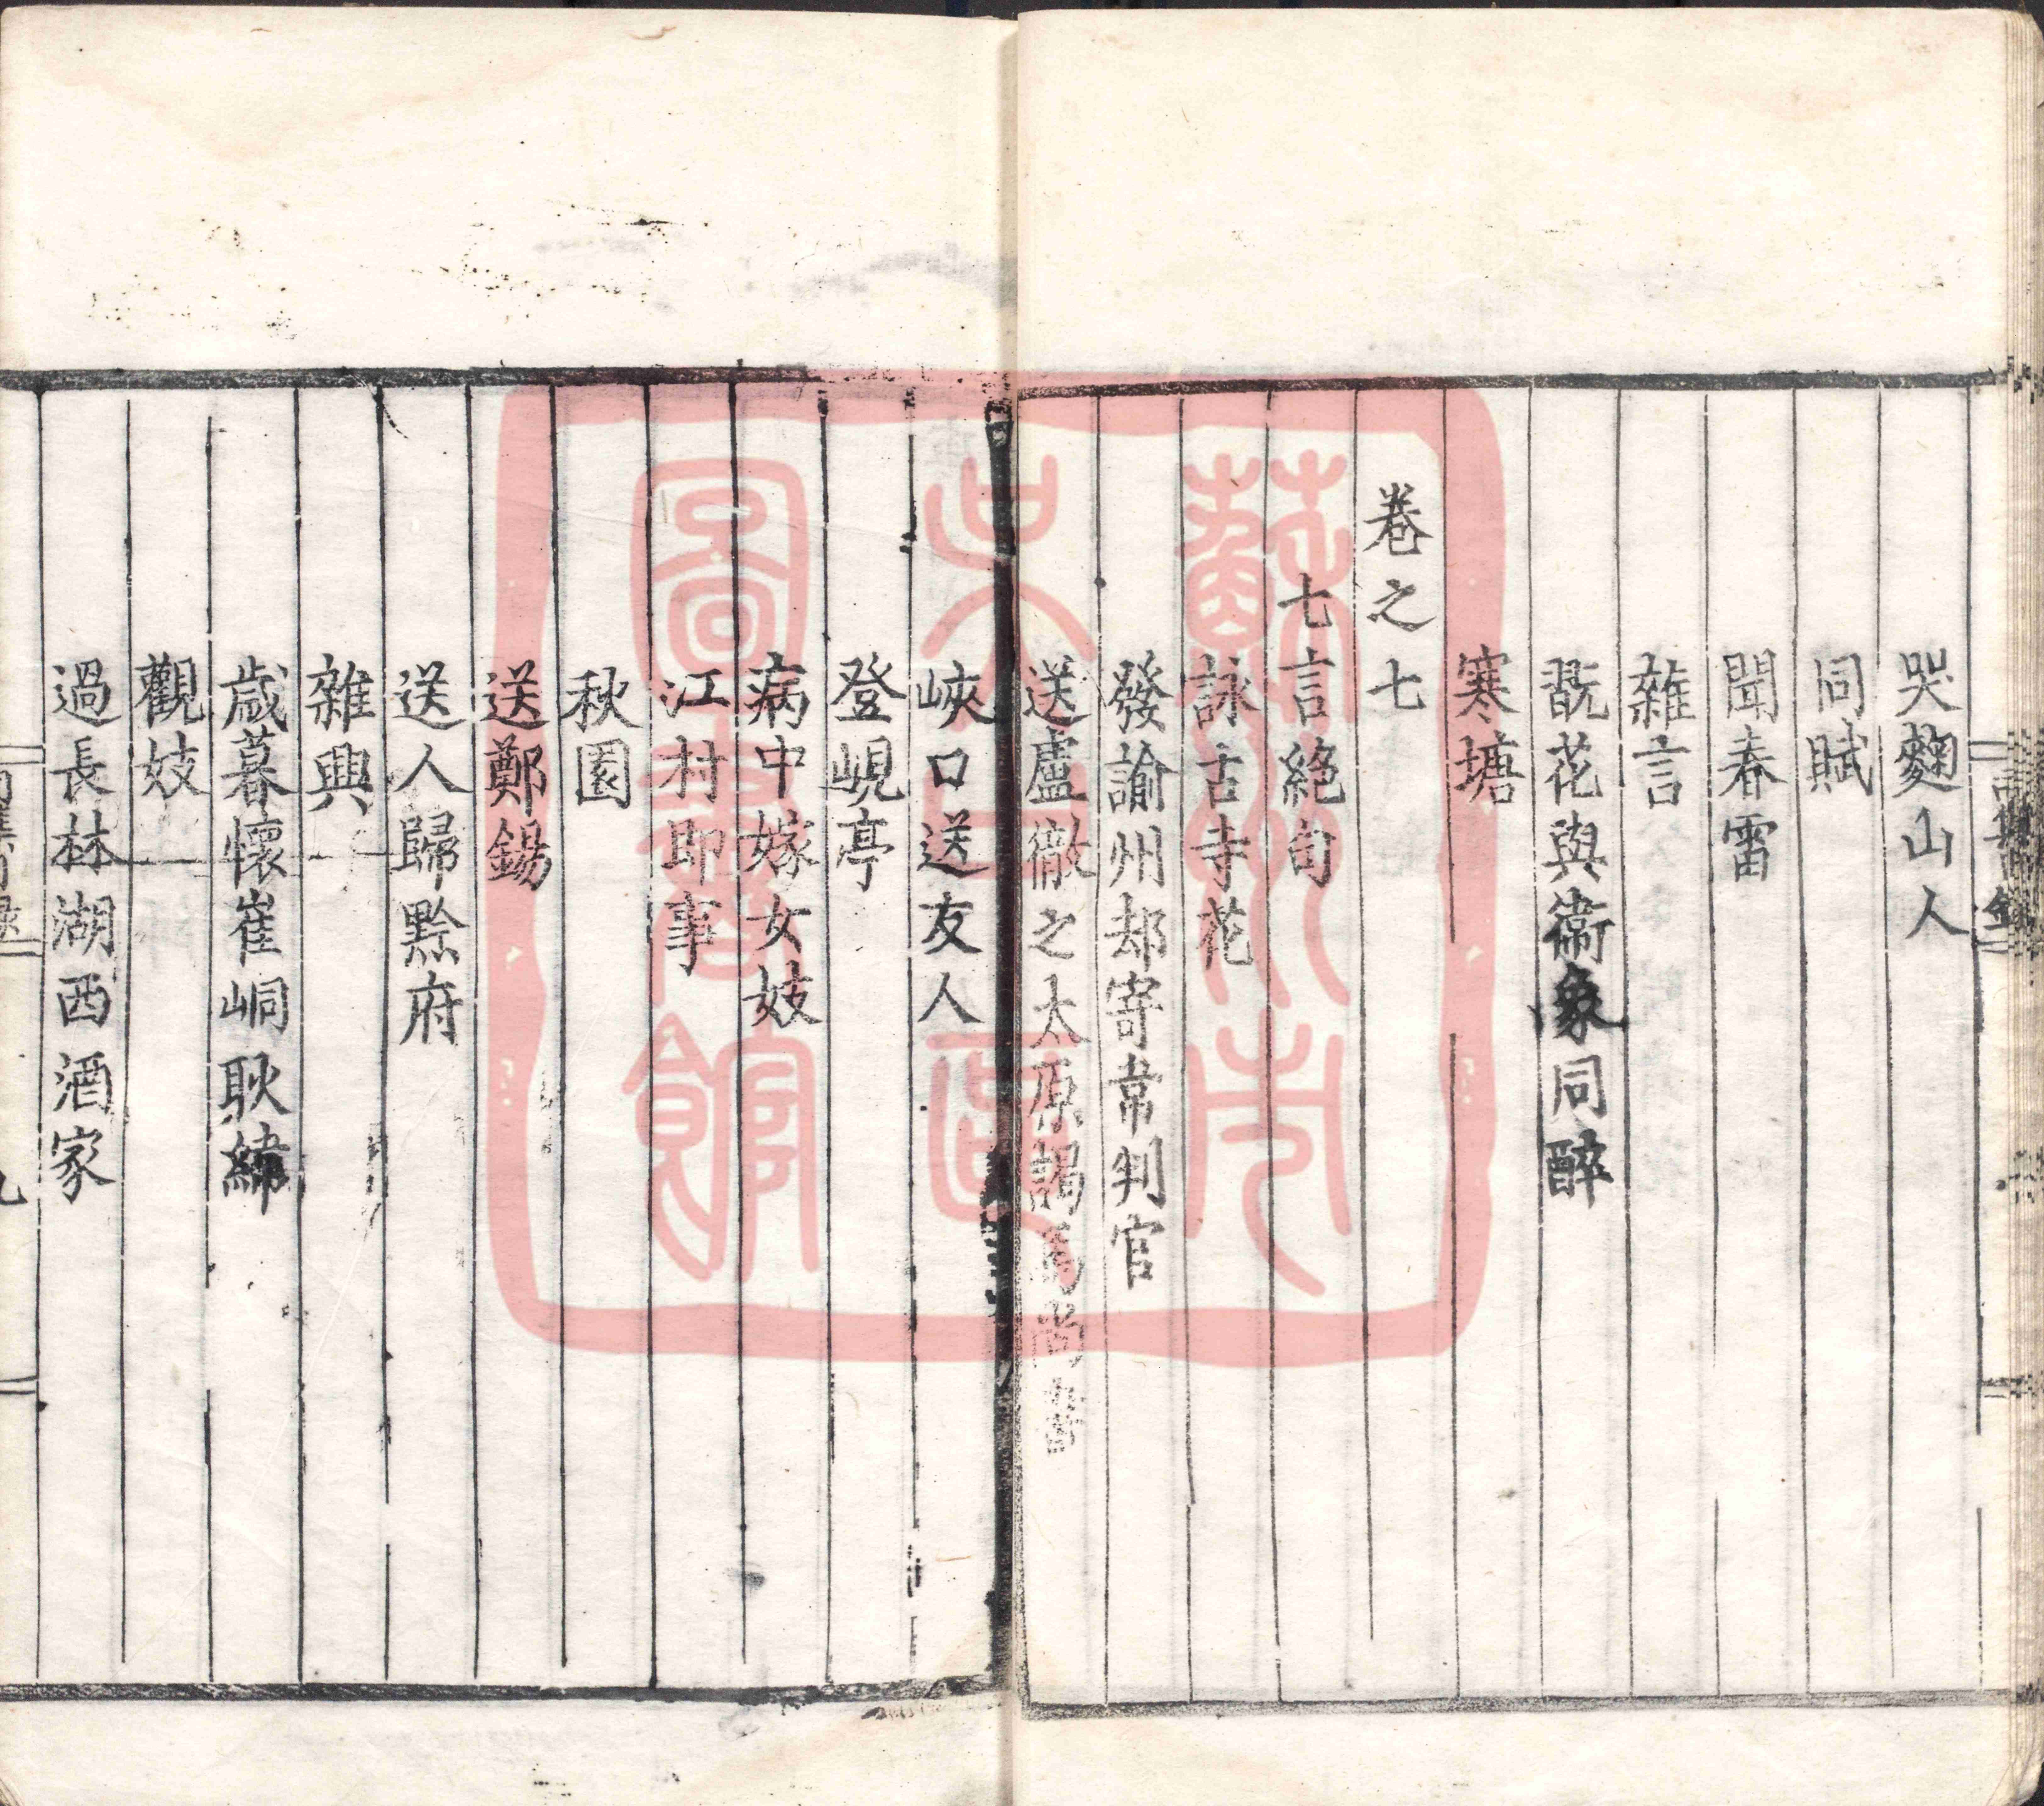 哭麹山人
同賦
聞春雷
雜言
翫花與衞象同醉
寒塘
卷之七
七言絕句
詠古寺花
發渝州却寄韋判官
送盧徹之太原謁馬尚書
峽口送友人
登峴亭
病中嫁女妓
江村即事
秋園
送鄭錫
送人歸黔府
雜興
歲暮懷崔峒耿緯
觀妓
過長林湖西酒家
蘇州市
圖書館